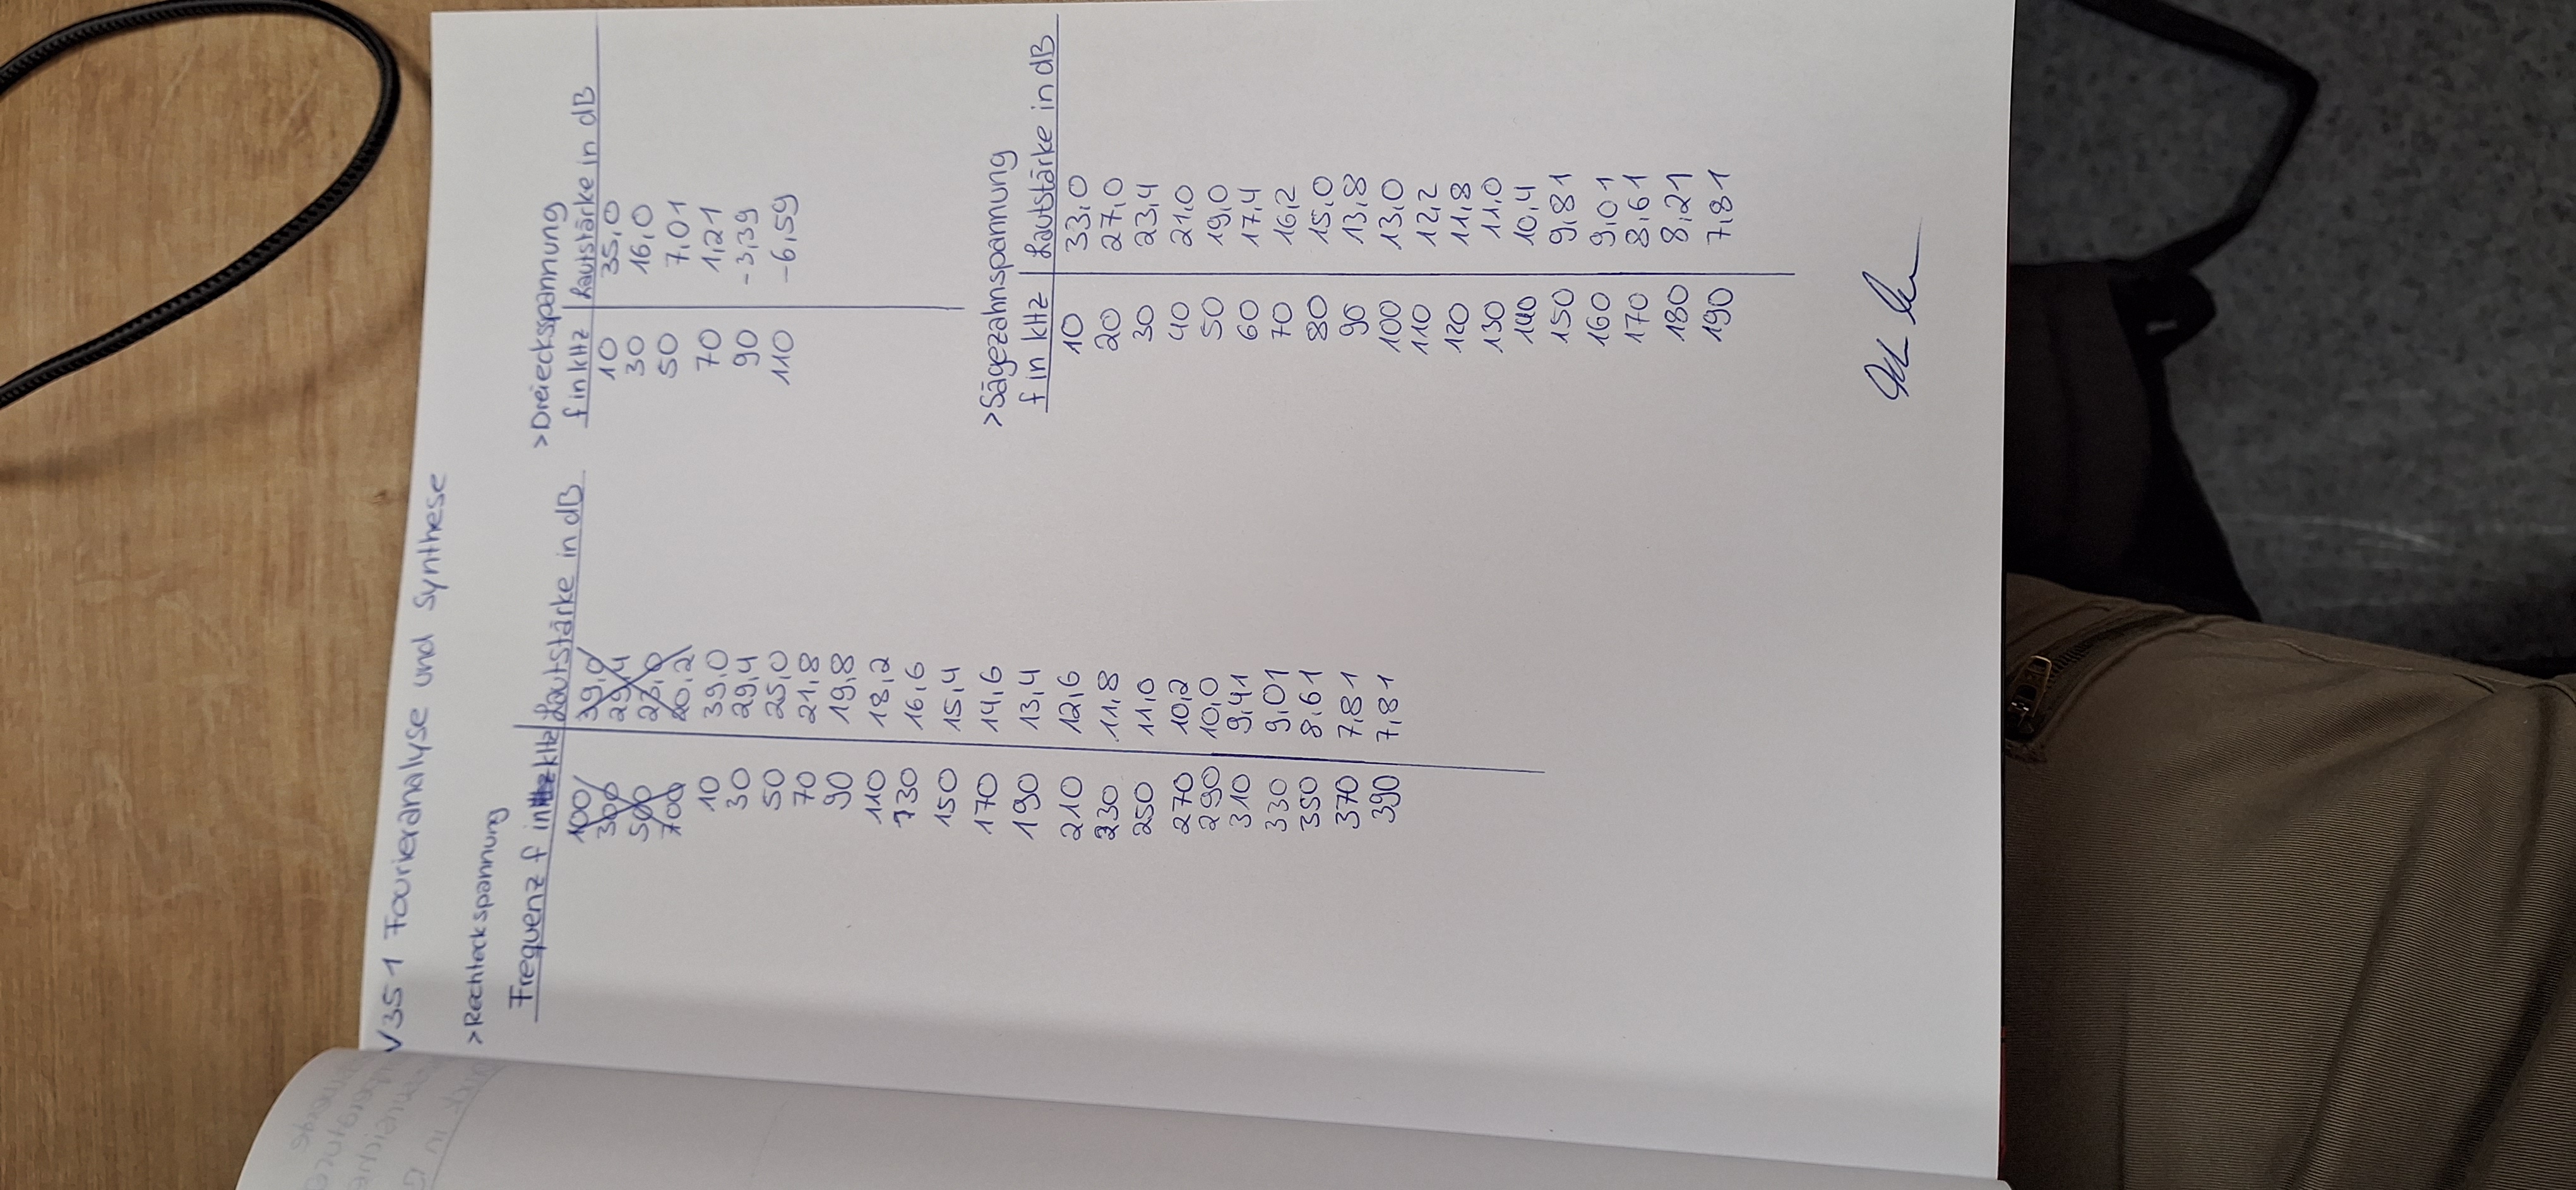 V351 Fourieranalyse und Synthese
>Rechteckspannung
Frequenz f in kHz Lautstärke in dB
100 39,0
300 29,4
500
700 20,2
10 39,0
30 29,4
50 25,0
70 21,8
90 19,8
110 18,2
130 16,6
150 15,4
170 14,6
190 13,4
210 12,6
230 11,8
250 11,0
270 10,2
290 10,0
310 9,41
330 9,01
350 8,61
370 7,81
390 7,81
>Dreiecksspannung
f in kHz Lautstärke in dB
10 35,0
30 16,0
50 7,01
70 1,21
90 -3,39
110 -6,59
>Sägezahnspannung
f in kHz Lautstärke in dB
10 33,0
20 27,0
30 23,4
40 21,0
50 19,0
60 17,4
70 16,2
80 15,0
90 13,8
100 13,0
110 12,2
120 11,8
130 11,0
140 10,4
150 9,81
160 9,01
170 8,61
180 8,21
190 7,81